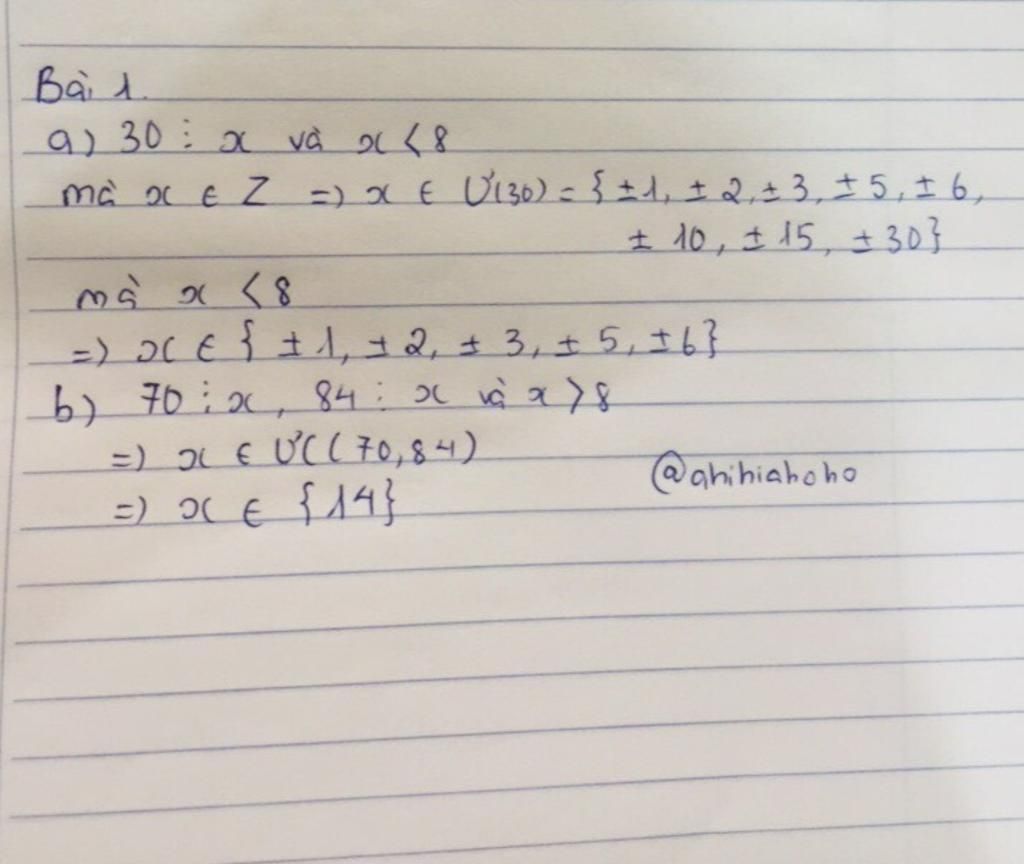 Bài 1.
a) 30 ⋮ x và x < 8
mà x ∈ Z => x ∈ Ư(30) = {±1, ±2, ±3, ±5, ±6,
±10, ±15, ±30}
mà x < 8
=> x ∈ {±1, ±2, ±3, ±5, ±6}
b) 70 ⋮ x, 84 ⋮ x và x > 8
=> x ∈ ƯC(70,84)
@ahihiahoho
=> x ∈ {14}